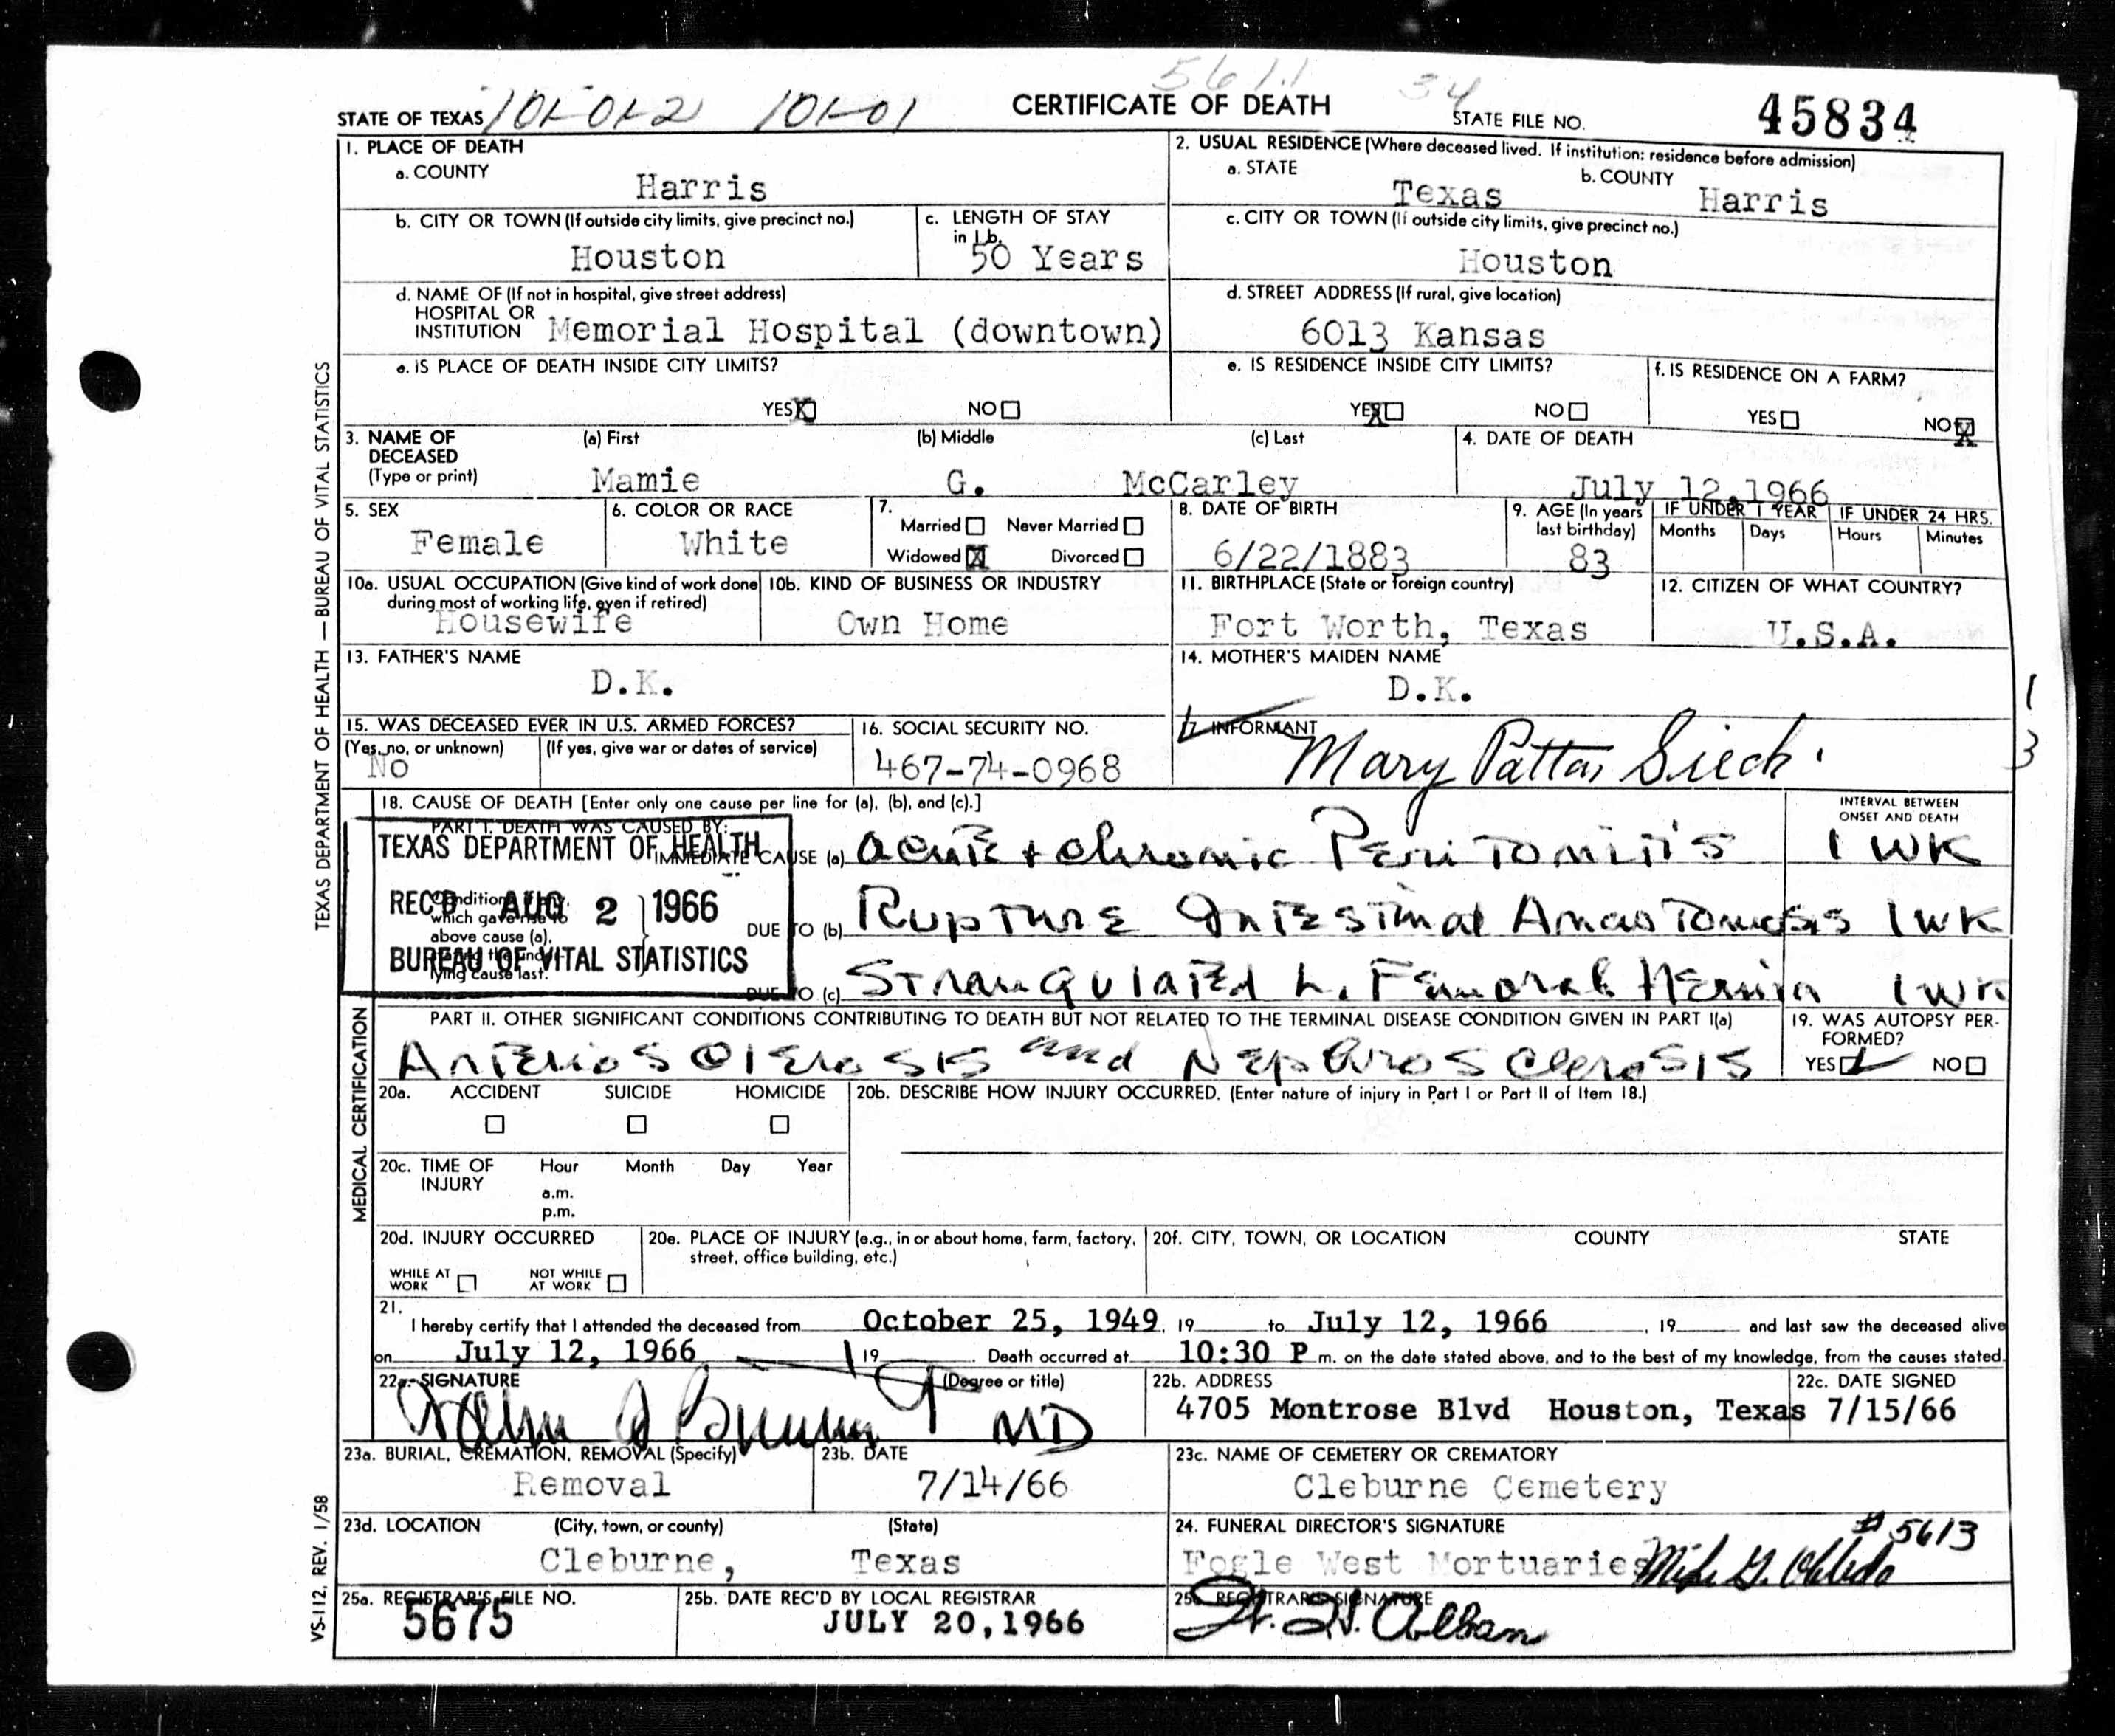 5611 34
STATE OF TEXAS 101-01-2 101-01 CERTIFICATE OF DEATH STATE FILE NO. 45834
1. PLACE OF DEATH
a. COUNTY Harris
2. USUAL RESIDENCE (Where deceased lived. If institution: residence before admission)
a. STATE Texas b. COUNTY Harris
b. CITY OR TOWN (If outside city limits, give precinct no.) Houston
c. LENGTH OF STAY in 1b. 50 Years
c. CITY OR TOWN (If outside city limits, give precinct no.) Houston
d. NAME OF (If not in hospital, give street address)
HOSPITAL OR
INSTITUTION Memorial Hospital (downtown)
d. STREET ADDRESS (If rural, give location)
6013 Kansas
e. IS PLACE OF DEATH INSIDE CITY LIMITS?
YES X NO
e. IS RESIDENCE INSIDE CITY LIMITS?
YES X NO
f. IS RESIDENCE ON A FARM?
YES NO X
3. NAME OF DECEASED (Type or print)
(a) First (b) Middle (c) Last
Mamie G. McCarley
4. DATE OF DEATH
July 12, 1966
5. SEX
Female
6. COLOR OR RACE
White
7.
Married Never Married
Widowed X Divorced
8. DATE OF BIRTH
6/22/1883
9. AGE (In years last birthday)
83
IF UNDER 1 YEAR
Months Days
IF UNDER 24 HRS.
Hours Minutes
10a. USUAL OCCUPATION (Give kind of work done during most of working life, even if retired)
Housewife
10b. KIND OF BUSINESS OR INDUSTRY
Own Home
11. BIRTHPLACE (State or foreign country)
Fort Worth, Texas
12. CITIZEN OF WHAT COUNTRY?
U.S.A.
13. FATHER'S NAME
D.K.
14. MOTHER'S MAIDEN NAME
D.K.
15. WAS DECEASED EVER IN U.S. ARMED FORCES?
(Yes, no, or unknown) (If yes, give war or dates of service)
No
16. SOCIAL SECURITY NO.
467-74-0968
17. INFORMANT
Mary Patton
1
3
18. CAUSE OF DEATH [Enter only one cause per line for (a), (b), and (c).]
INTERVAL BETWEEN
ONSET AND DEATH
PART I. DEATH WAS CAUSED BY:
IMMEDIATE CAUSE (a) Acute + chronic Peritonitis 1 WK
Conditions, if any,
which gave rise to
above cause (a),
lying cause last.
DUE TO (b) Rupture Intestinal Anastomosis 1 WK
DUE TO (c) Strangulated L. Femoral Hernia 1 WK
TEXAS DEPARTMENT OF HEALTH
REC'D AUG 2 1966
BUREAU OF VITAL STATISTICS
PART II. OTHER SIGNIFICANT CONDITIONS CONTRIBUTING TO DEATH BUT NOT RELATED TO THE TERMINAL DISEASE CONDITION GIVEN IN PART I(a)
Arteriosclerosis and Nephrosclerosis
19. WAS AUTOPSY PERFORMED?
YES ✓ NO
20a. ACCIDENT SUICIDE HOMICIDE
20b. DESCRIBE HOW INJURY OCCURRED. (Enter nature of injury in Part I or Part II of Item 18.)
20c. TIME OF INJURY Hour Month Day Year
a.m.
p.m.
20d. INJURY OCCURRED
WHILE AT WORK NOT WHILE AT WORK
20e. PLACE OF INJURY (e.g., in or about home, farm, factory, street, office building, etc.)
20f. CITY, TOWN, OR LOCATION COUNTY STATE
21.
I hereby certify that I attended the deceased from October 25, 1949, 19 to July 12, 1966, 19 and last saw the deceased alive
on July 12, 1966, 19. Death occurred at 10:30 P m. on the date stated above, and to the best of my knowledge, from the causes stated.
22a. SIGNATURE (Degree or title)
MD
22b. ADDRESS
4705 Montrose Blvd Houston, Texas
22c. DATE SIGNED
7/15/66
23a. BURIAL, CREMATION, REMOVAL (Specify)
Removal
23b. DATE
7/14/66
23c. NAME OF CEMETERY OR CREMATORY
Cleburne Cemetery
23d. LOCATION (City, town, or county) (State)
Cleburne, Texas
24. FUNERAL DIRECTOR'S SIGNATURE
# 5613
Fogle West Mortuaries
25a. REGISTRAR'S FILE NO.
5675
25b. DATE REC'D BY LOCAL REGISTRAR
JULY 20, 1966
25c. REGISTRAR'S SIGNATURE
TEXAS DEPARTMENT OF HEALTH — BUREAU OF VITAL STATISTICS
MEDICAL CERTIFICATION
VS-112, REV. 1/58